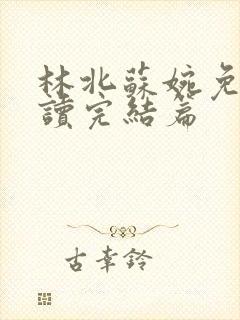 林北蘇婉免
讀完結篇
古幸鈴